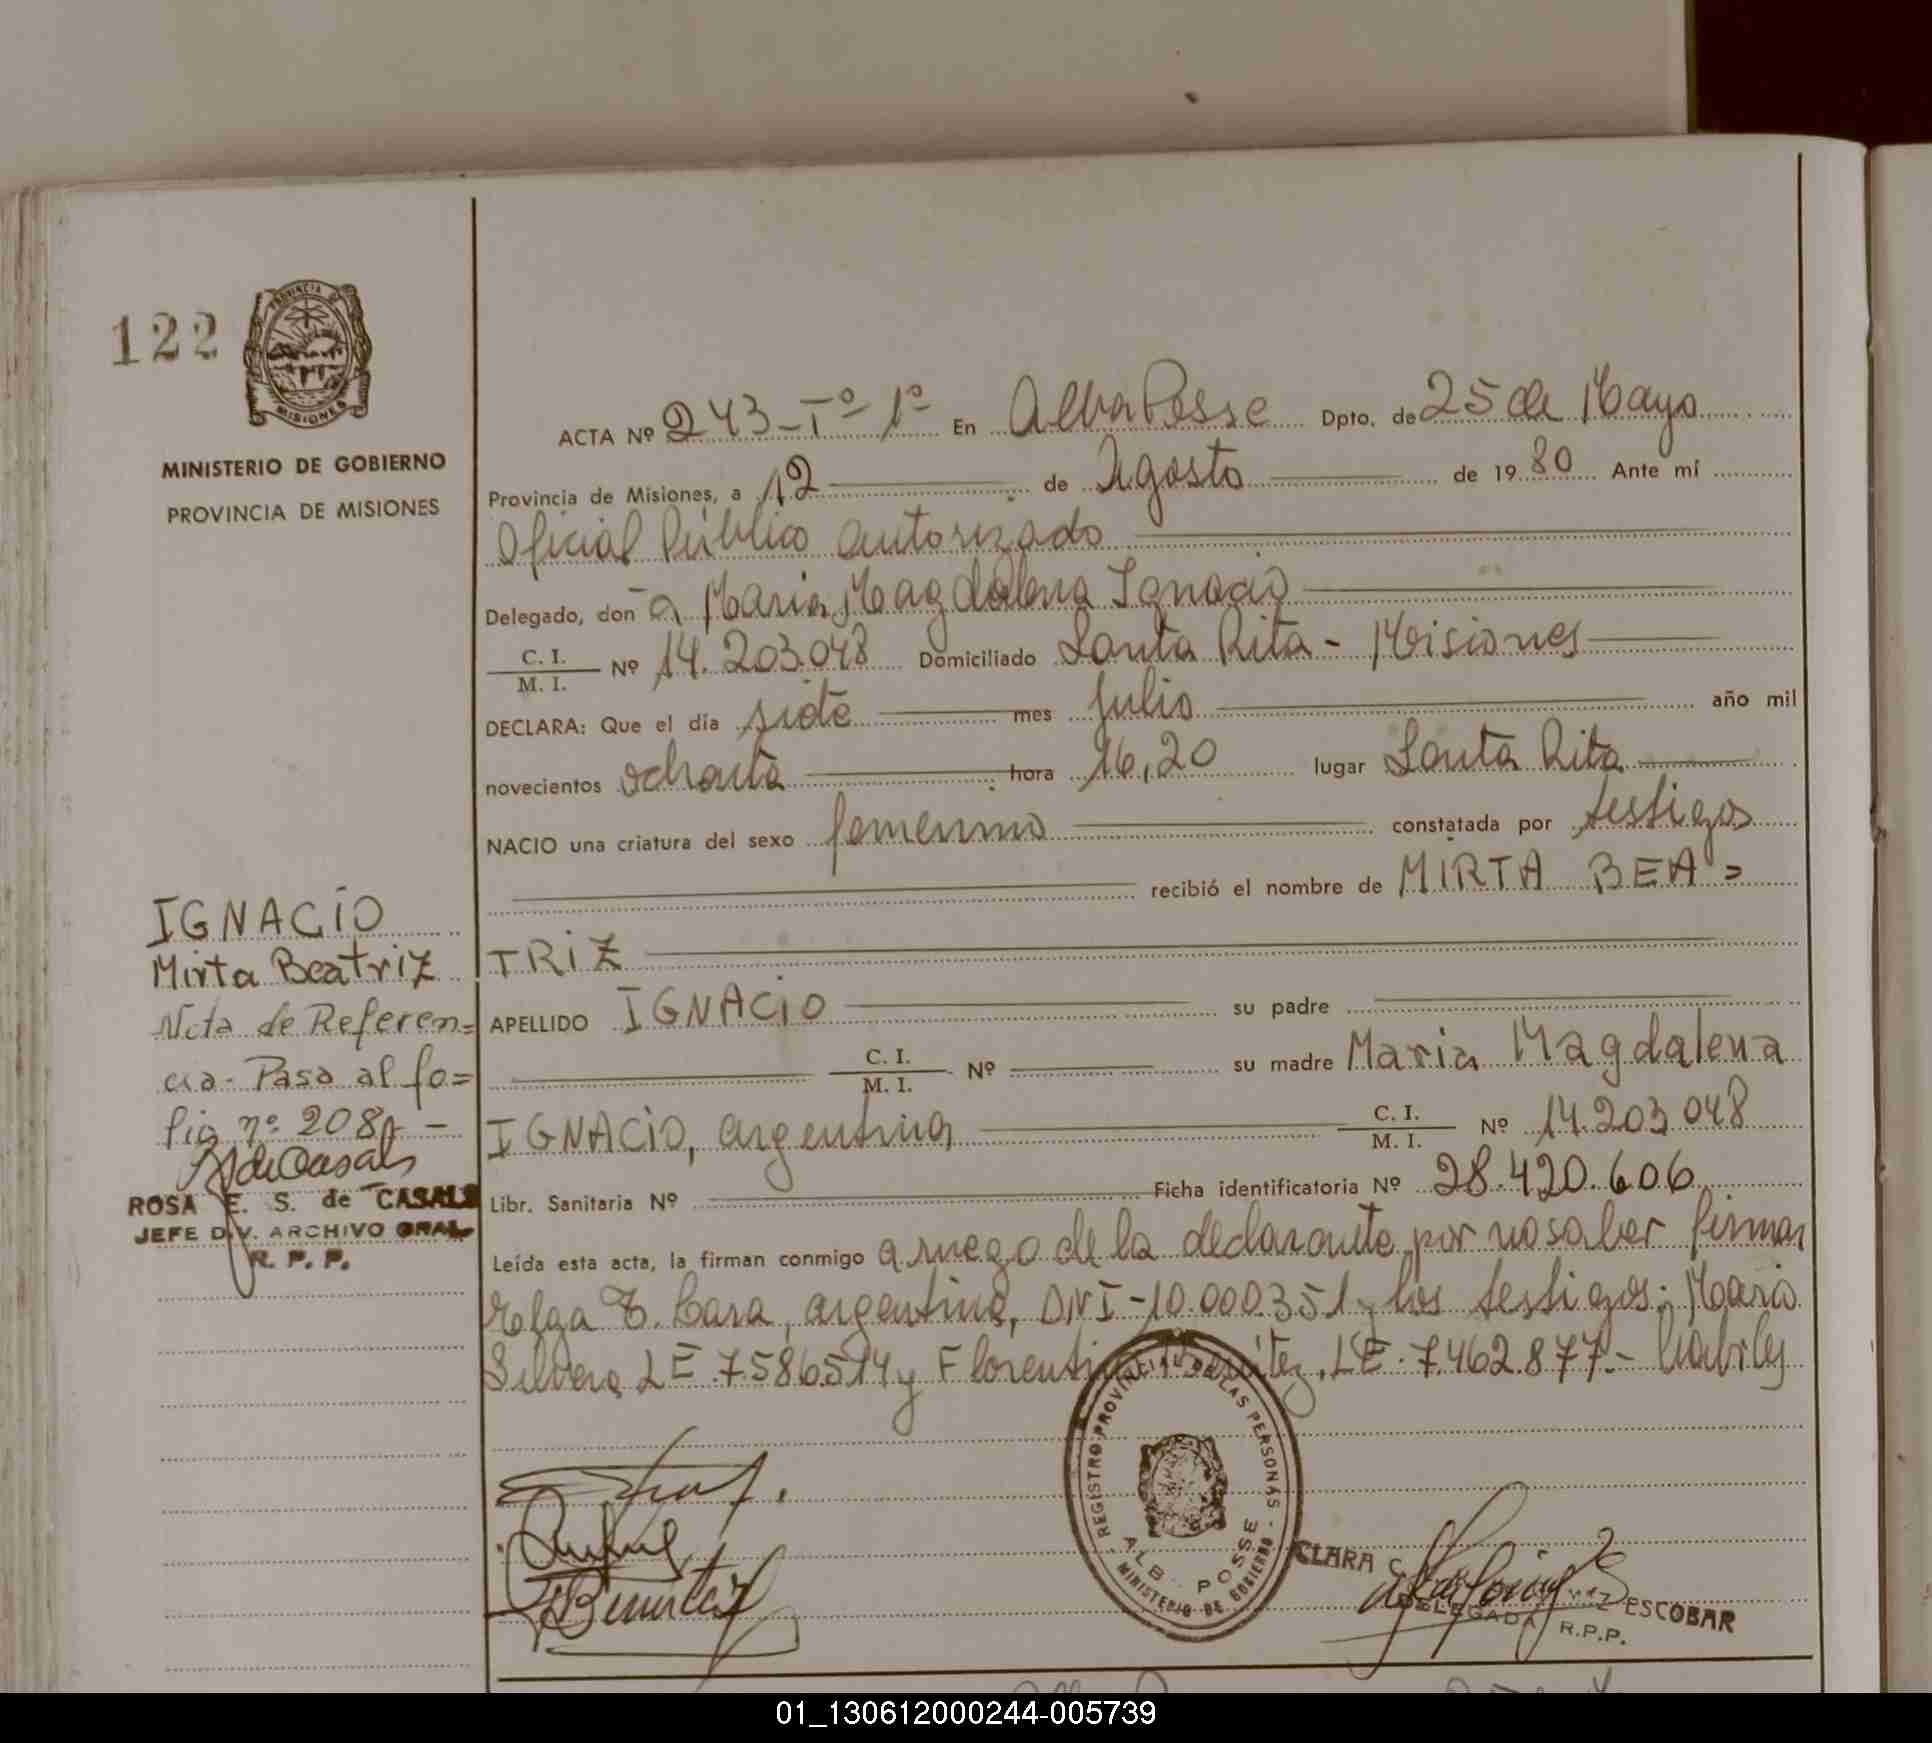 122
PROVINCIA DE
MISIONES
MINISTERIO DE GOBIERNO
PROVINCIA DE MISIONES
ACTA Nº 243-Tº 1º En Alba Posse Dpto. de 25 de Mayo
Provincia de Misiones, a 12 de Agosto de 1980 Ante mí
Oficial Público autorizado
Delegado, don ª Maria Magdalena Ignacio
C. I. / M. I. Nº 14.203.048 Domiciliado Santa Rita - Misiones
DECLARA: Que el día siete mes julio año mil
novecientos ochenta hora 16,20 lugar Santa Rita
NACIO una criatura del sexo femenino constatada por testigos
recibió el nombre de MIRTA BEA=
TRIZ
APELLIDO IGNACIO su padre
C. I. / M. I. Nº su madre Maria Magdalena
IGNACIO, argentina C. I. / M. I. Nº 14.203.048
Libr. Sanitaria Nº Ficha identificatoria Nº 28.420.606
Leída esta acta, la firman conmigo a ruego de la declarante por no saber firmar
Elga T. Cara, argentina, DNI-10.000.351 y los testigos: Mario
Silvera LE.7.586.514 y Florentino Benítez, LE.7.462.877.- hábiles
IGNACIO
Mirta Beatriz
Nota de Referen=
cia- Pasa al fo=
lio nº 208 -
ROSA E. S. de CASALS
JEFE DIV. ARCHIVO GRAL
R. P. P.
REGISTRO PROVINCIAL DE LAS PERSONAS
ALB. POSSE
MINISTERIO DE GOBIERNO
Benitez
CLARA C ESCOBAR
DELEGADA R.P.P.
01_130612000244-005739